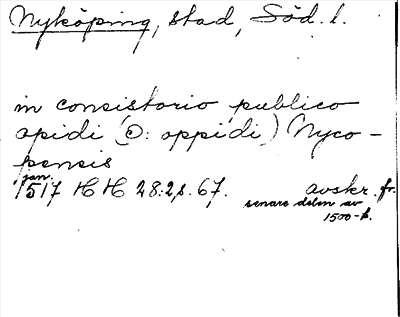 Nyköping, stad, Söd. l.
in consistorio publico
opidi (ɔ: oppidi) Nyco-
pensis
jan.
1517 HH 28:2, s. 67. avskr. fr.
senare delen av
1500-t.